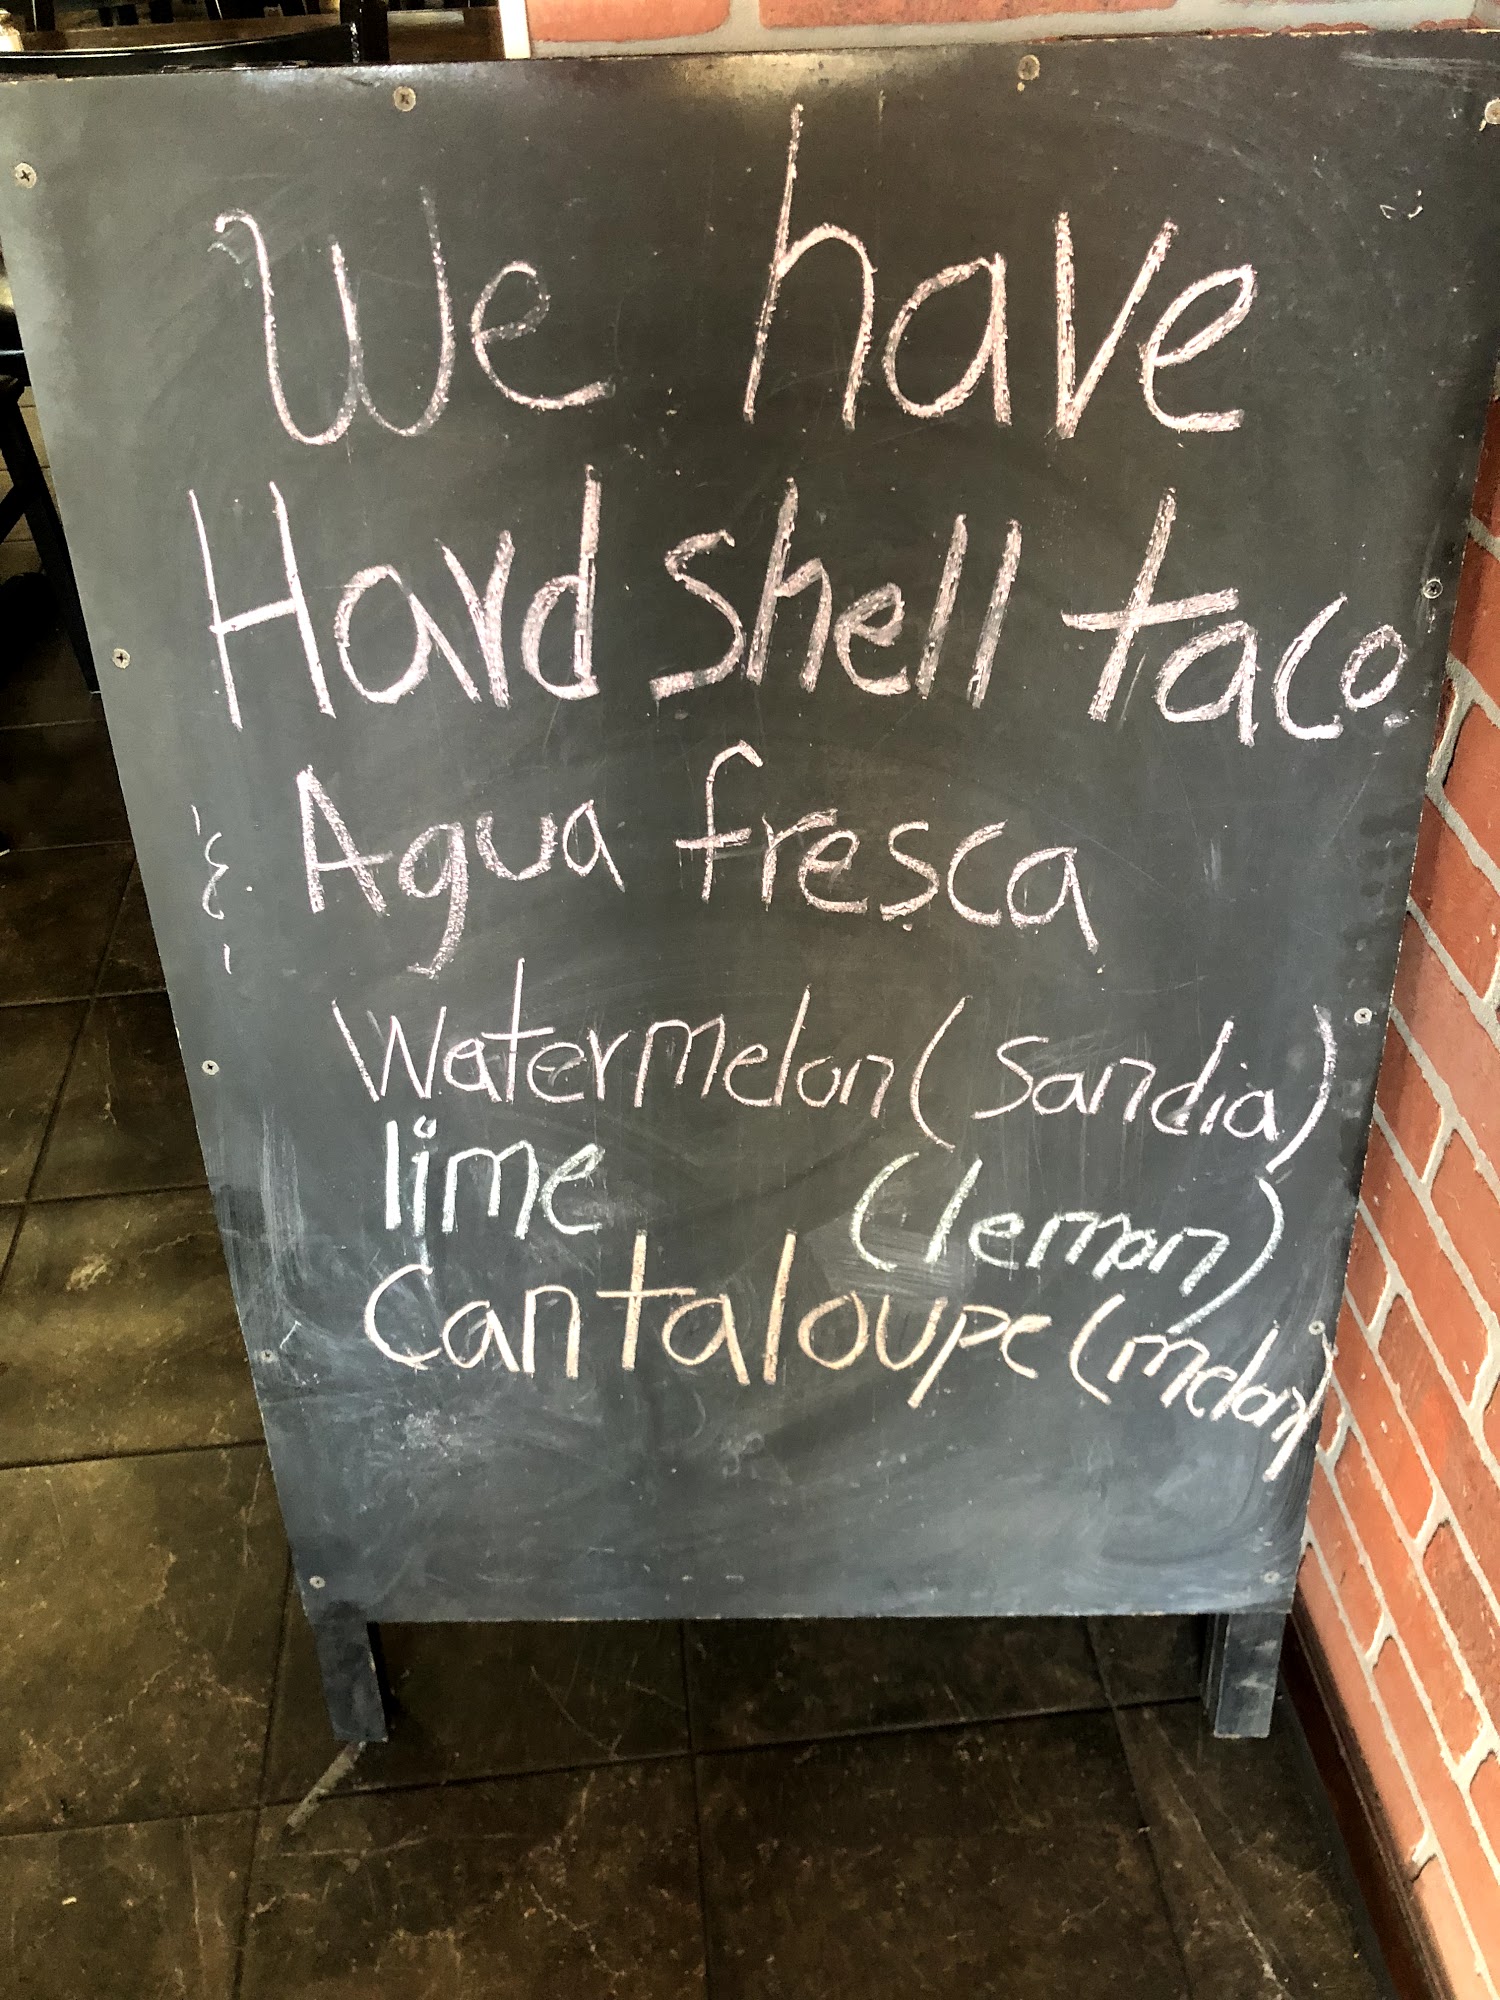 We have
Hard shell taco
& Agua fresca
Watermelon (Sandia)
lime (lemon)
Cantaloupe (melon)